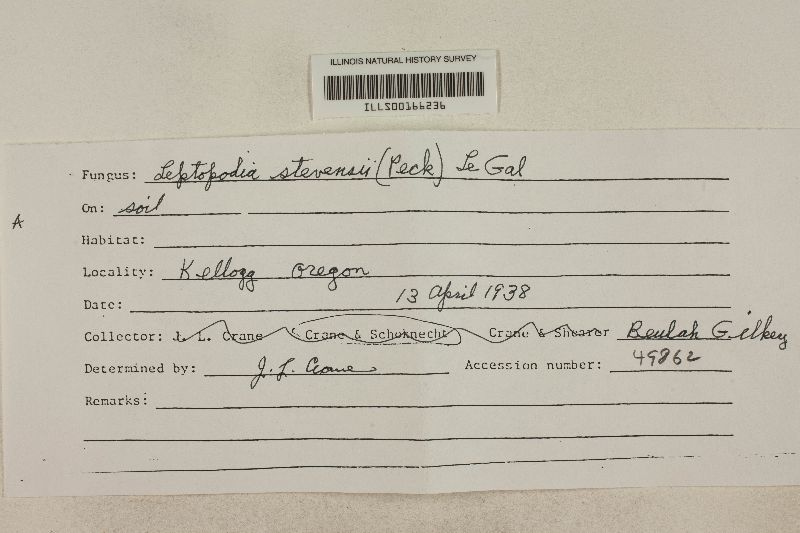 ILLINOIS NATURAL HISTORY SURVEY
ILLS00166236
Fungus: Leptopodia stevensii (Peck) Le Gal
On: soil
A
Habitat:
Locality: Kellogg Oregon
Date: 13 April 1938
Collector: J. L. Crane Crane & Schoknecht Crane & Shearer Beulah Gilkey
Determined by: J. L. Crane Accession number: 49862
Remarks: